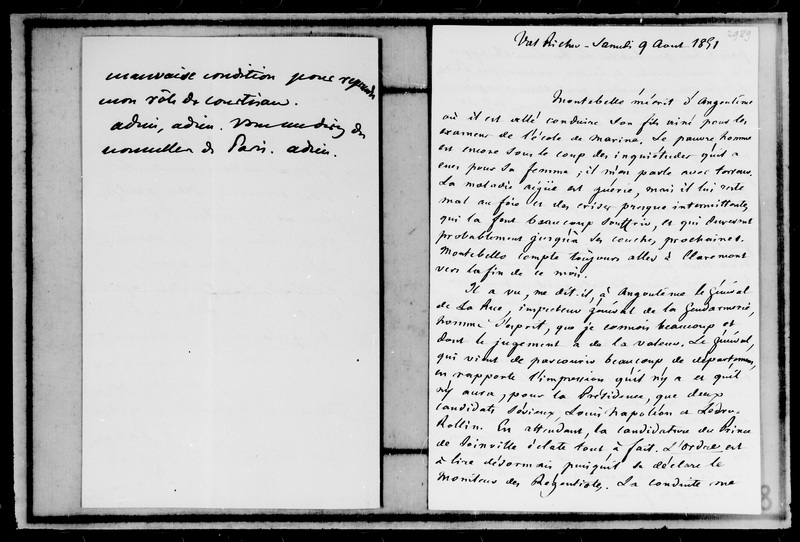 mauvaise condition pour reprendre
mon rôle de courtisan.
adieu, adieu. Vous me direz des
nouvelles de Paris. adieu.
2989
Val Richer - Samedi 9 Aout 1851
Montebello m'écrit d'Angoulème
où il est allé conduire son fils ainé pour les
examens de l'école de marine. Le pauvre homme
est encore sous le coup des inquiétudes qu'il a
eues pour sa femme ; il m'en parle avec terreur.
La maladie aigüe est guérie, mais il lui reste
mal au foie et des crises presque intermittentes
qui la font beaucoup souffrir, et qui dureront
probablement jusqu'à ses couches, prochaines.
Montebello compte toujours aller à Claremont
vers la fin de ce mois.
Il a vu, me dit-il, à Angoulème le général
de La Rue, inspecteur général de la Gendarmerie,
homme d'esprit, que je connois beaucoup et
dont le jugement a de la valeur. Le général,
qui vient de parcourir beaucoup de départemens,
en rapporte l'impression qu'il n'y a et qu'il
n'y aura, pour la Présidence, que deux
candidats sérieux, Louis Napoléon et Ledru-
Rollin. En attendant, la candidature du Prince
de Joinville éclate tout à fait. L'Ordre est
à lire désormais puisqu'il se déclare le
moniteur des Régentistes. La conduite me
8